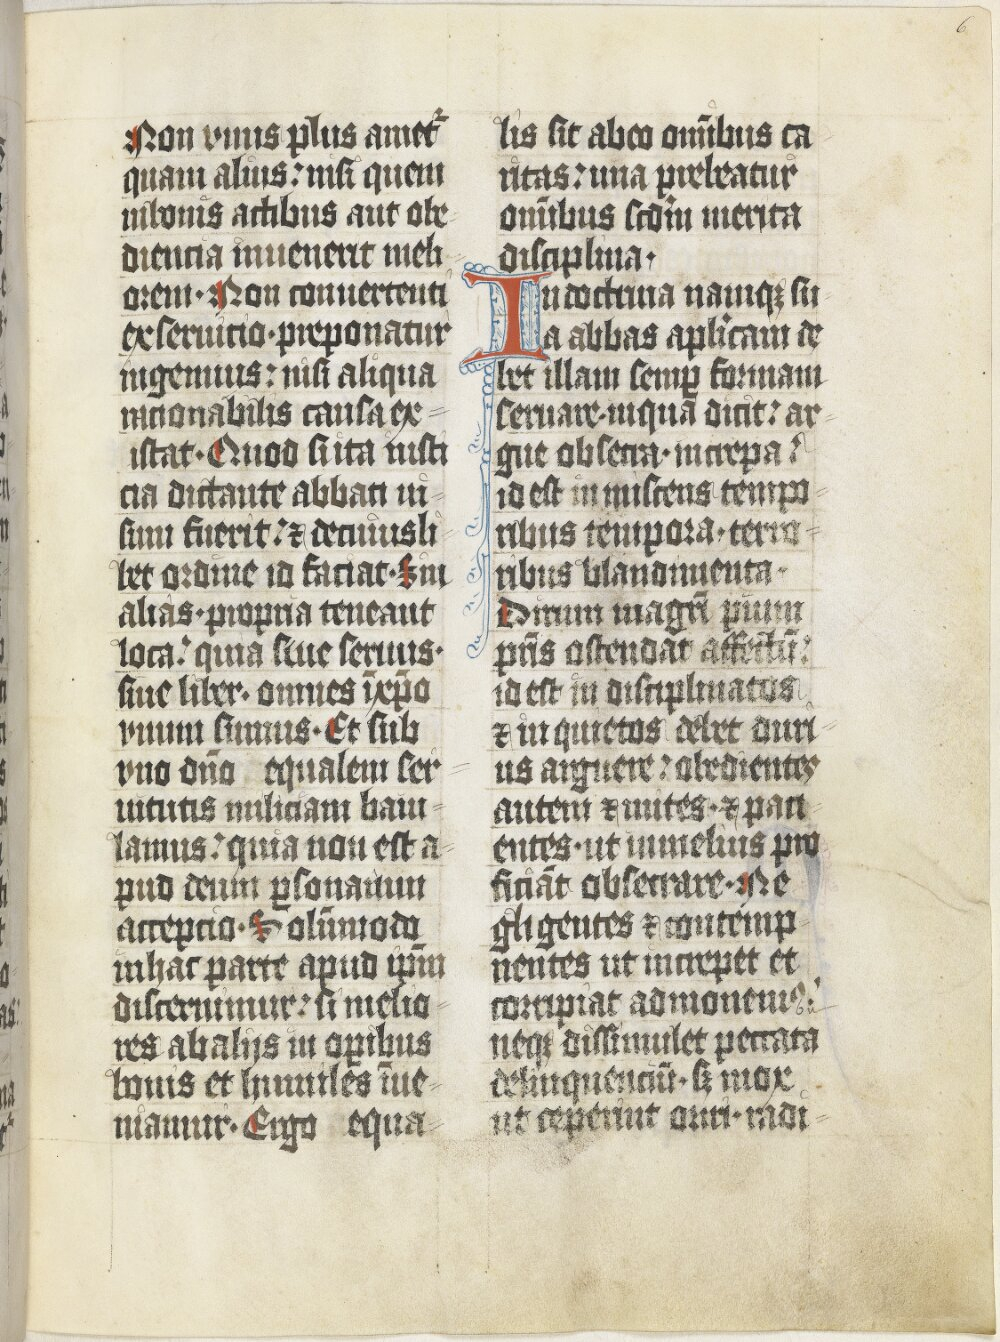 6
Non vnus plus ametᷣ
quam alius: nisi quem
inbonis actibus aut obe
diencia inuenerit meli
orem. Non conuertenti
ex seruicio. preponatur
ingenuus: nisi aliqua
racionabilis causa ex
istat. Quod si ita iusti
cia dictante abbati ui
sum fuerit: ⁊ decuiusli
bet ordine id faciat. Sin
alias. propria teneant
loca: quia siue seruus.
siue liber. omnes ī xp̄o
vnum sumus. Et sub
vno dn̄o equalem ser
uitutis miliciam baiu
lamus: quia non est a
pud deum ꝑsonarum
accepcio. Solūmodo
inhac parte apud ip̄m
discernimur: si melio
res abalijs in operibus
bonis et humiles īue
niamur. Ergo equa
lis sit abeo om̄ibus ca
ritas: una prebeatur
om̄ibus scd̄m merita
disciplina.
In doctrina namqꝫ su
a abbas apl̄icam de
bet illam semꝑ formam
seruare. inqua dicit: ar
gue obsecra. increpa:
id est in miscens tempo
ribus tempora. terro
ribus blandimenta.
Dirum magr̄i pium
pr̄is ostendāt affectū:
id est in disciplinatos
⁊ in quietos debet duri
us arguere: obedientes
autem ⁊ mites. ⁊ paci
entes. ut inmelius pro
ficiāt obsecrare. Ne
gligentes ⁊ contemp
nentes ut increpet et
corripiat admonemꝰ:
neqꝫ dissimulet peccata
delinquenciū. sꝫ mox
ut ceperint oriri. radi